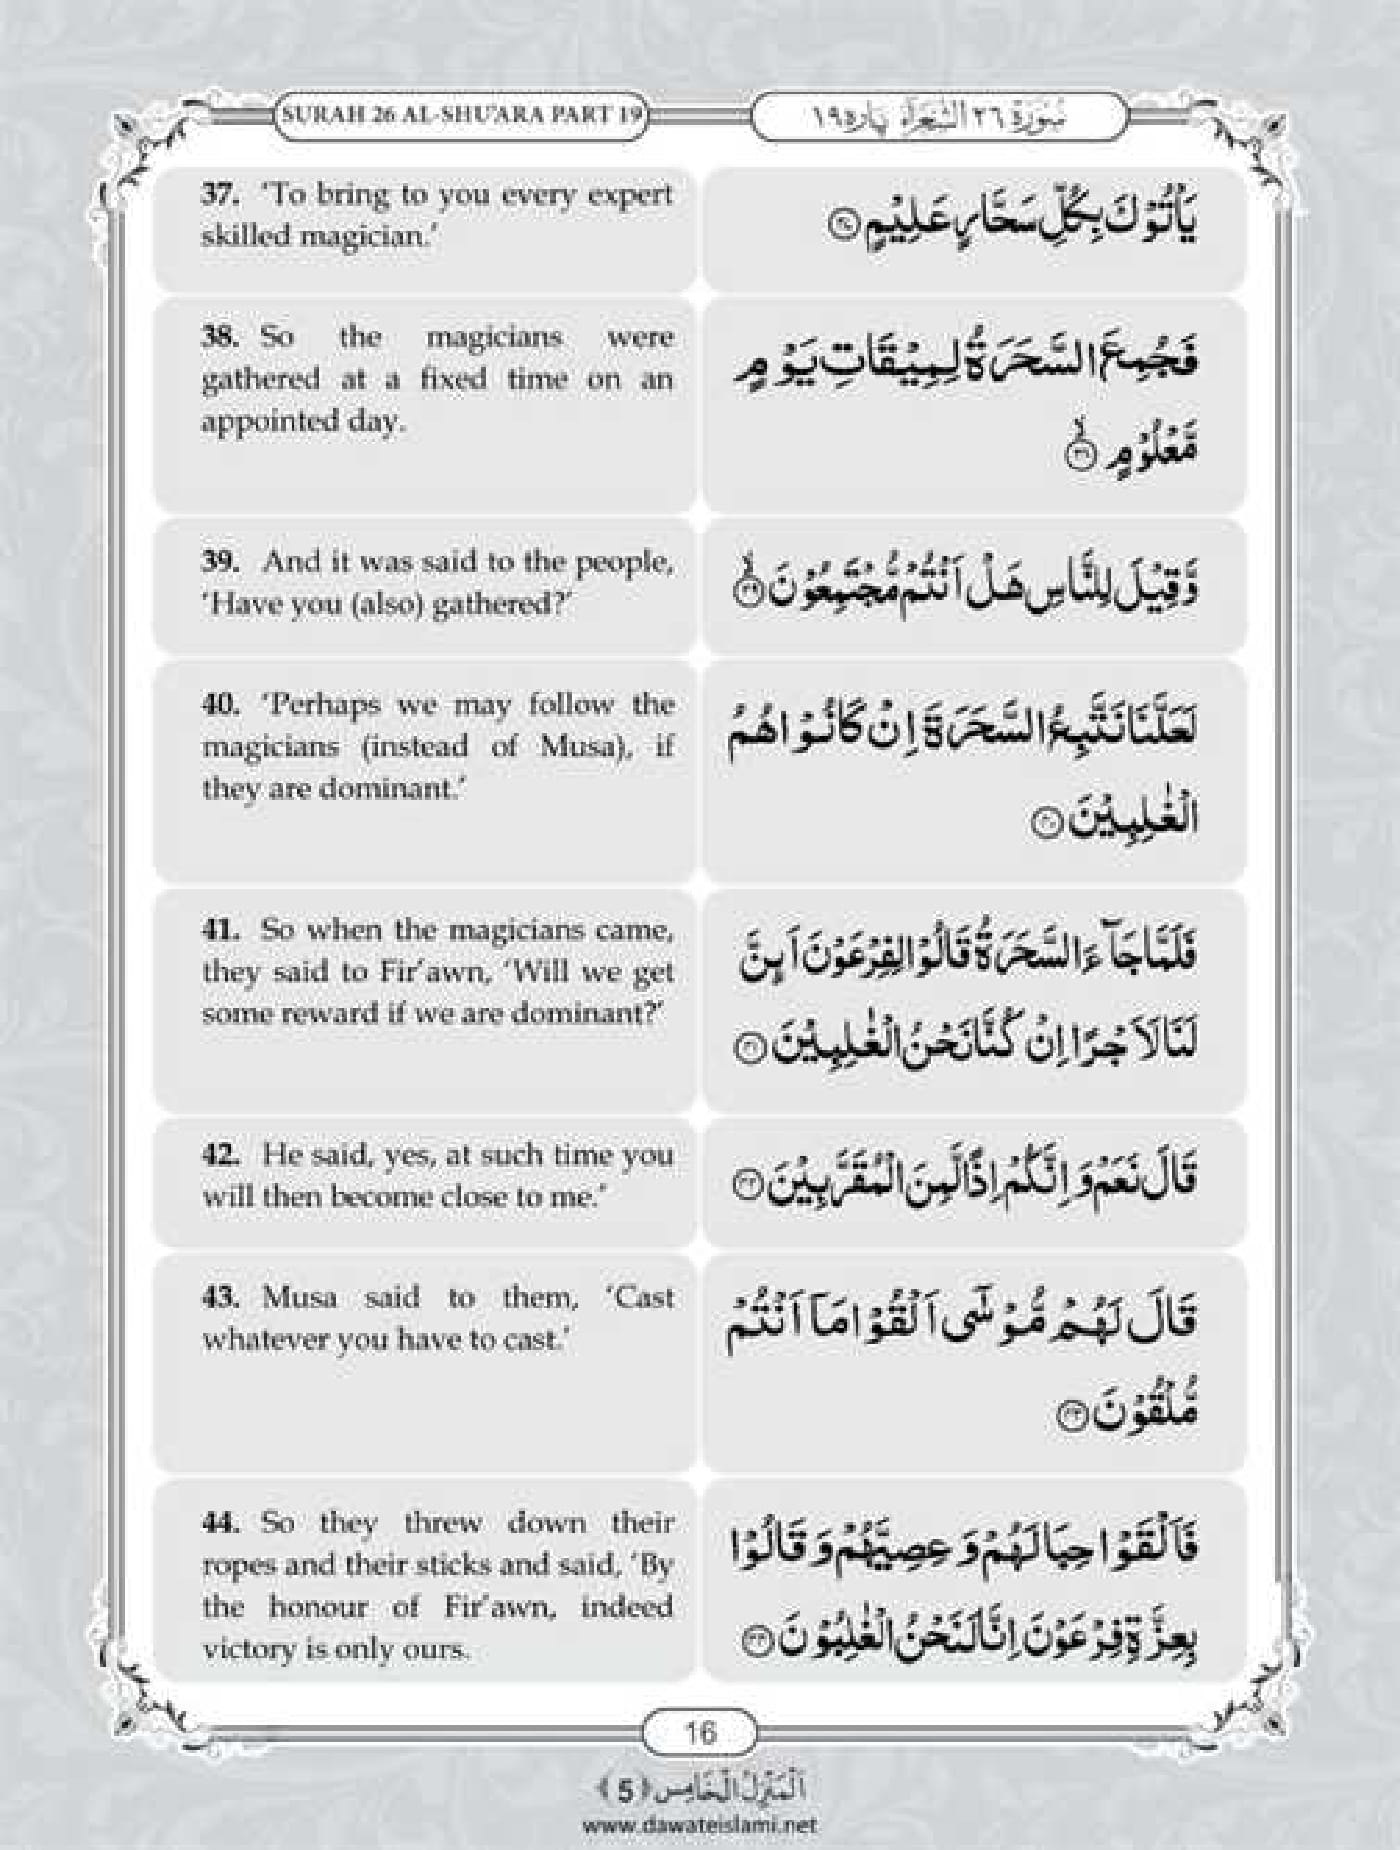 SURAH 26 AL-SHU'ARA PART 19
سُوْرَةُ ٢٦ الشُّعَرَآء پاره ١٩
37. ‘To bring to you every expert
skilled magician.’
يَاْتُوْكَ بِكُلِّ سَحَّارٍ عَلِيْمٍ ﴿۳۷﴾
38. So the magicians were
gathered at a fixed time on an
appointed day.
فَجُمِعَ السَّحَرَةُ لِمِيْقَاتِ يَوْمٍ
مَّعْلُوْمٍ ۙ﴿۳۸﴾
39. And it was said to the people,
‘Have you (also) gathered?’
وَّقِيْلَ لِلنَّاسِ هَلْ اَنْتُمْ مُّجْتَمِعُوْنَ ۙ﴿۳۹﴾
40. ‘Perhaps we may follow the
magicians (instead of Musa), if
they are dominant.’
لَعَلَّنَا نَتَّبِعُ السَّحَرَةَ اِنْ كَانُوْا هُمُ
الْغٰلِبِيْنَ ﴿۴۰﴾
41. So when the magicians came,
they said to Fir’awn, ‘Will we get
some reward if we are dominant?’
فَلَمَّا جَآءَ السَّحَرَةُ قَالُوْا لِفِرْعَوْنَ اَىِٕنَّ
لَنَا لَاَجْرًا اِنْ كُنَّا نَحْنُ الْغٰلِبِيْنَ ﴿۴۱﴾
42. He said, yes, at such time you
will then become close to me.’
قَالَ نَعَمْ وَ اِنَّكُمْ اِذًا لَّمِنَ الْمُقَرَّبِيْنَ ﴿۴۲﴾
43. Musa said to them, ‘Cast
whatever you have to cast.’
قَالَ لَهُمْ مُّوْسٰۤى اَلْقُوْا مَاۤ اَنْتُمْ
مُّلْقُوْنَ ﴿۴۳﴾
44. So they threw down their
ropes and their sticks and said, ‘By
the honour of Fir’awn, indeed
victory is only ours.
فَاَلْقَوْا حِبَالَهُمْ وَ عِصِيَّهُمْ وَ قَالُوْا
بِعِزَّةِ فِرْعَوْنَ اِنَّا لَنَحْنُ الْغٰلِبُوْنَ ﴿۴۴﴾
16
اَلْمَنْزِلُ الْخَامِس ﴿5﴾
www.dawateislami.net